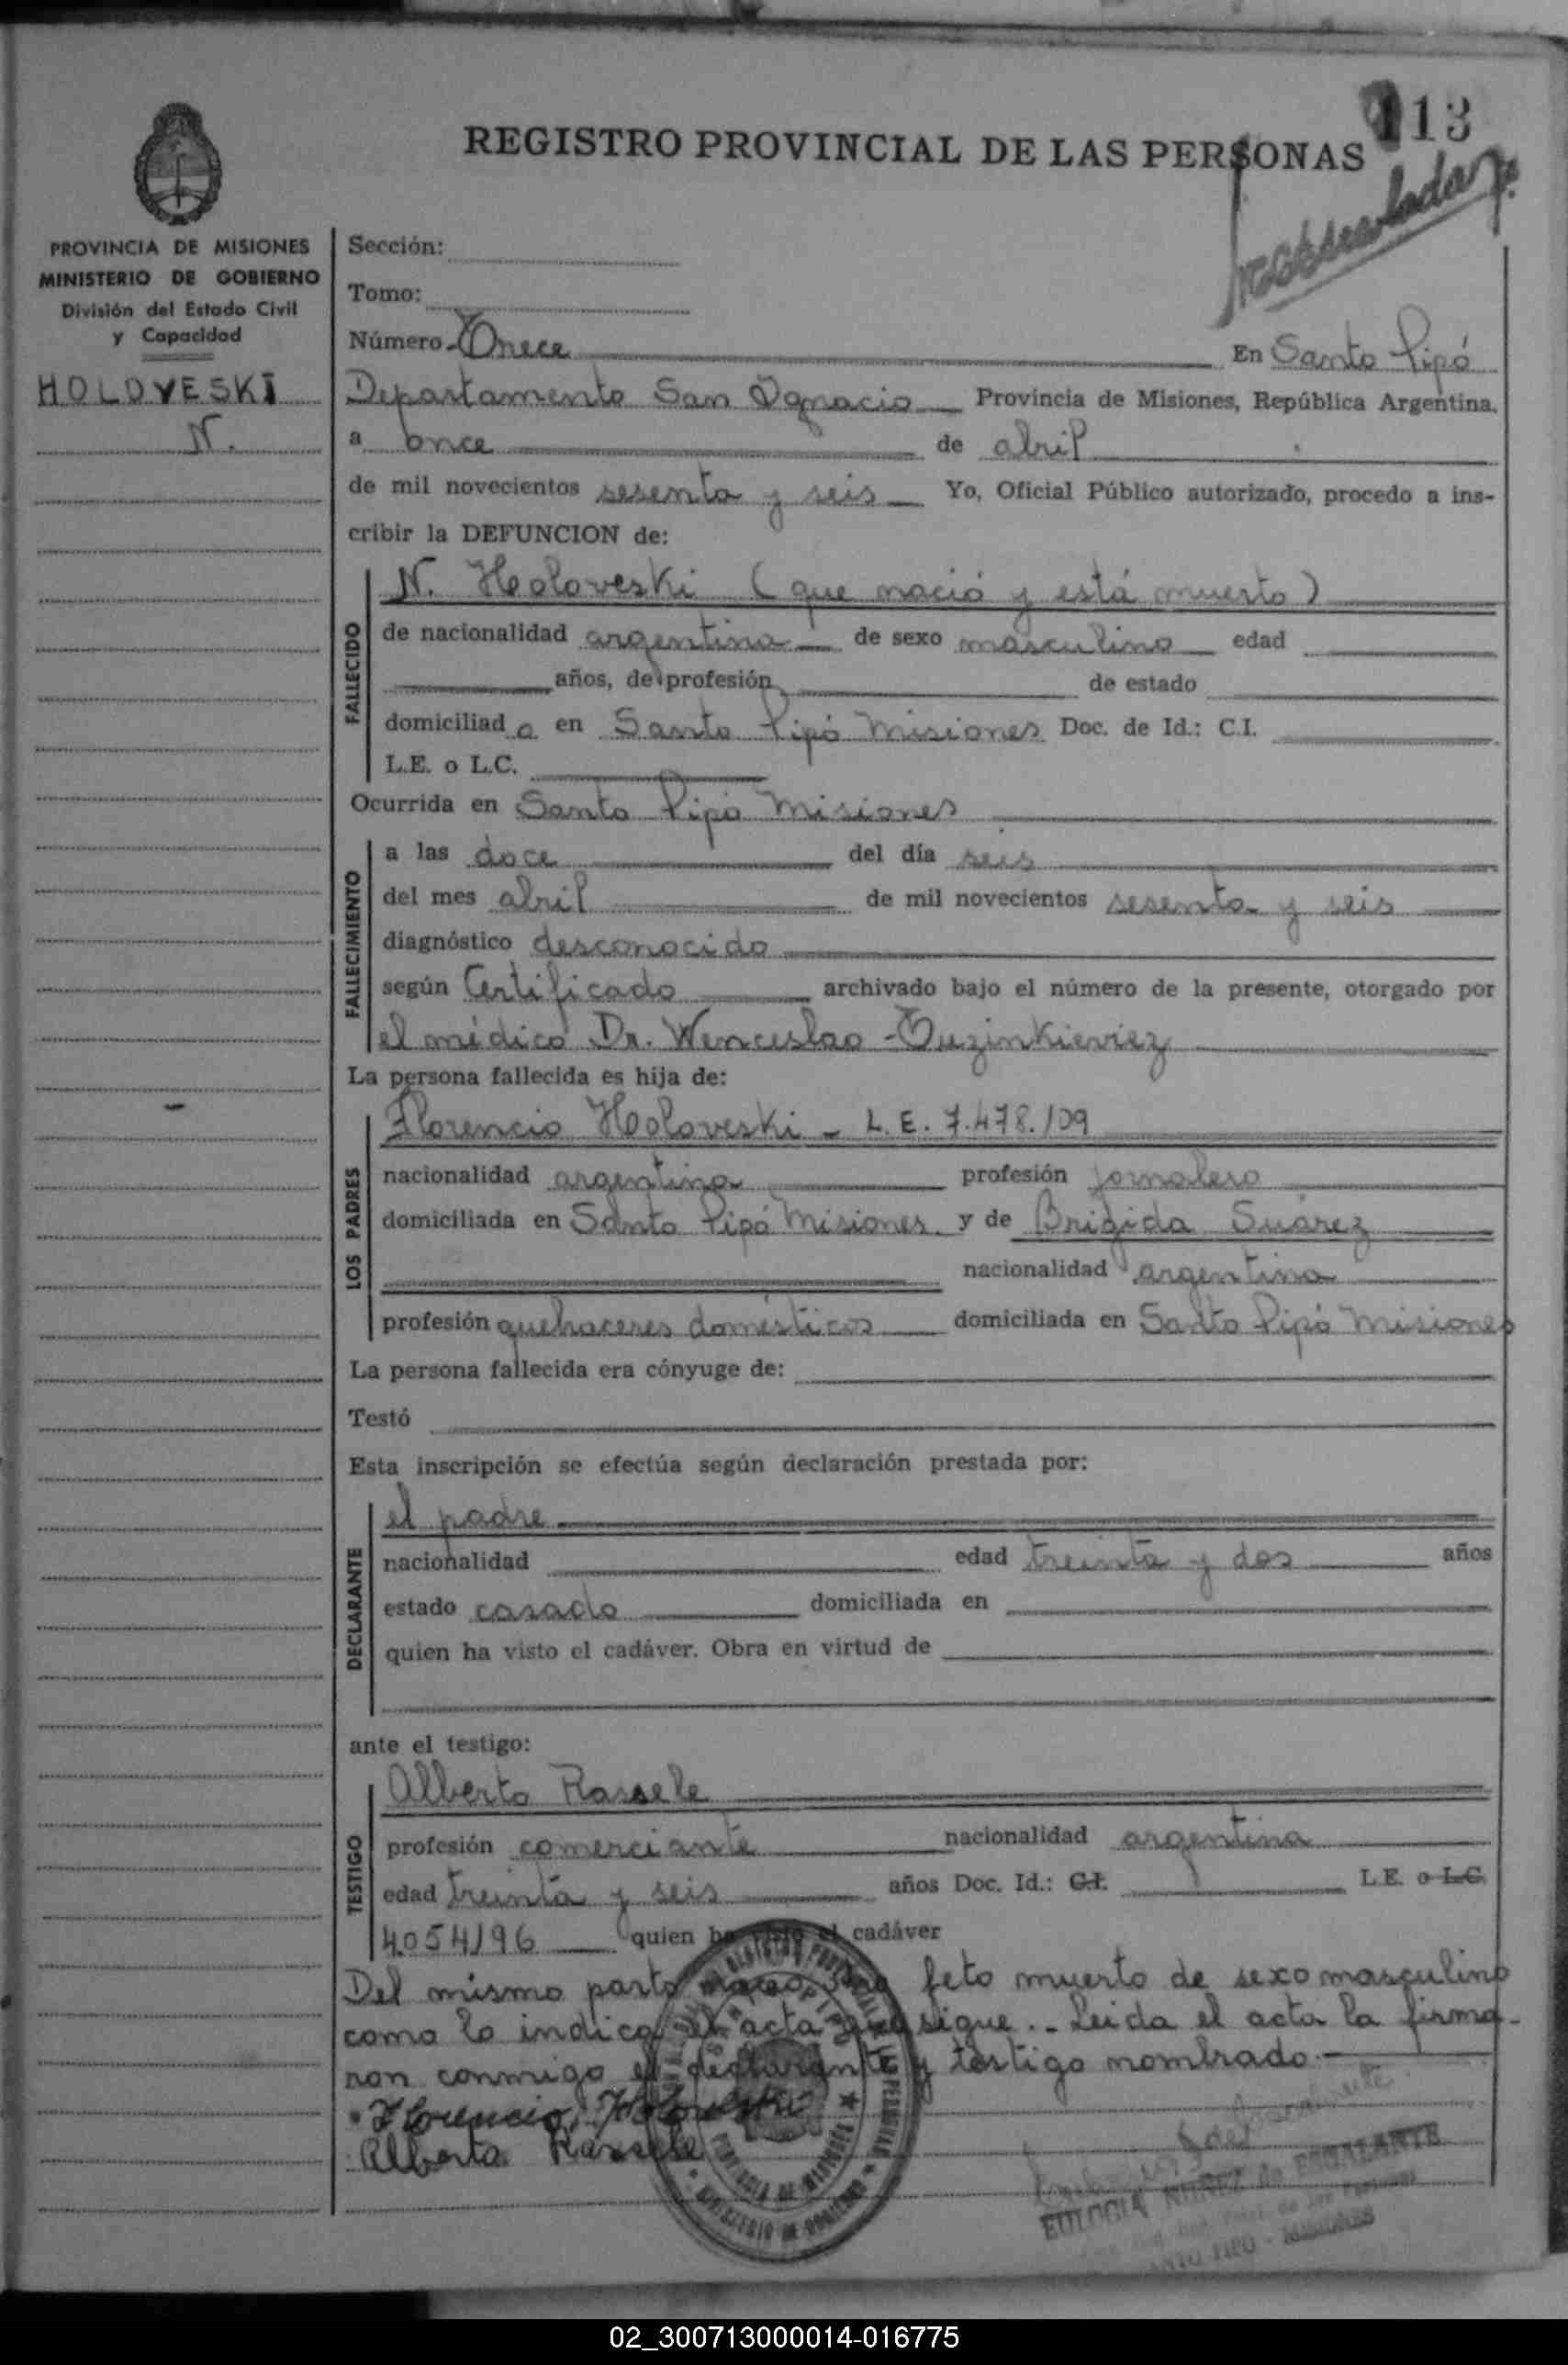 113
REGISTRO PROVINCIAL DE LAS PERSONAS
PROVINCIA DE MISIONES
MINISTERIO DE GOBIERNO
División del Estado Civil
y Capacidad
HOLOVESKI
N.
Sección:
Tomo:
Número - Onece En Santo Pipó
Departamento San Ignacio Provincia de Misiones, República Argentina.
a once de abril
de mil novecientos sesenta y seis Yo, Oficial Público autorizado, procedo a ins-
cribir la DEFUNCION de:
FALLECIDO
N. Holoveski (que nació y está muerto)
de nacionalidad argentina de sexo masculino edad
años, de profesión de estado
domiciliad o en Santo Pipó Misiones Doc. de Id.: C.I.
L.E. o L.C.
Ocurrida en Santo Pipó Misiones
FALLECIMIENTO
a las doce del día seis
del mes abril de mil novecientos sesenta y seis
diagnóstico desconocido
según Certificado archivado bajo el número de la presente, otorgado por
el médico Dr. Wenceslao
La persona fallecida es hija de:
LOS PADRES
Florencio Holoveski - L.E. 7.478.109
nacionalidad argentina profesión jornalero
domiciliada en Santo Pipó Misiones y de Brigida Suárez
nacionalidad argentina
profesión quehaceres domésticos domiciliada en Santo Pipó Misiones
La persona fallecida era cónyuge de:
Testó
Esta inscripción se efectúa según declaración prestada por:
DECLARANTE
el padre
nacionalidad edad treinta y dos años
estado casado domiciliada en
quien ha visto el cadáver. Obra en virtud de
ante el testigo:
TESTIGO
Alberto Rassele
profesión comerciante nacionalidad argentina
edad treinta y seis años Doc. Id.: C.I. L.E. o L.C.
4054196 quien ha visto el cadáver
Del mismo parto nació otro feto muerto de sexo masculino
como lo indica el acta que sigue.- Leida el acta la firma-
ron conmigo el declarante y testigo nombrado.-
Florencio Holoveski
Alberto Rassele
EULOGIA NUÑEZ de ESCALANTE
SANTO PIPO - MISIONES
02_300713000014-016775